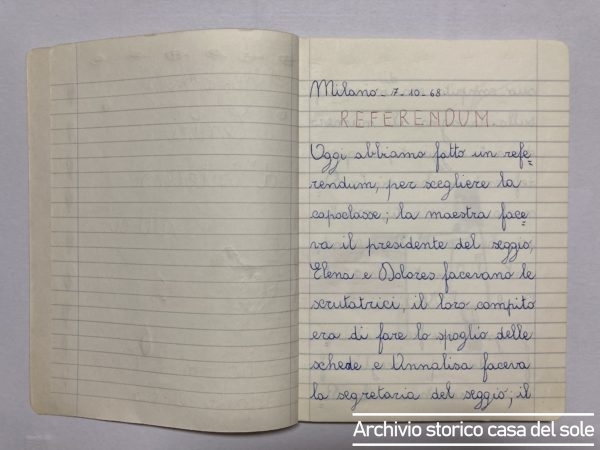 Milano - 7 - 10 - 68
REFERENDUM
Oggi abbiamo fatto un refe=
rendum, per scegliere la
capoclasse; la maestra face=
va il presidente del seggio,
Elena e Dolores facevano le
scrutatrici, il loro compito
era di fare lo spoglio delle
schede e Annalisa faceva
la segretaria del seggio; il
Archivio storico casa del sole